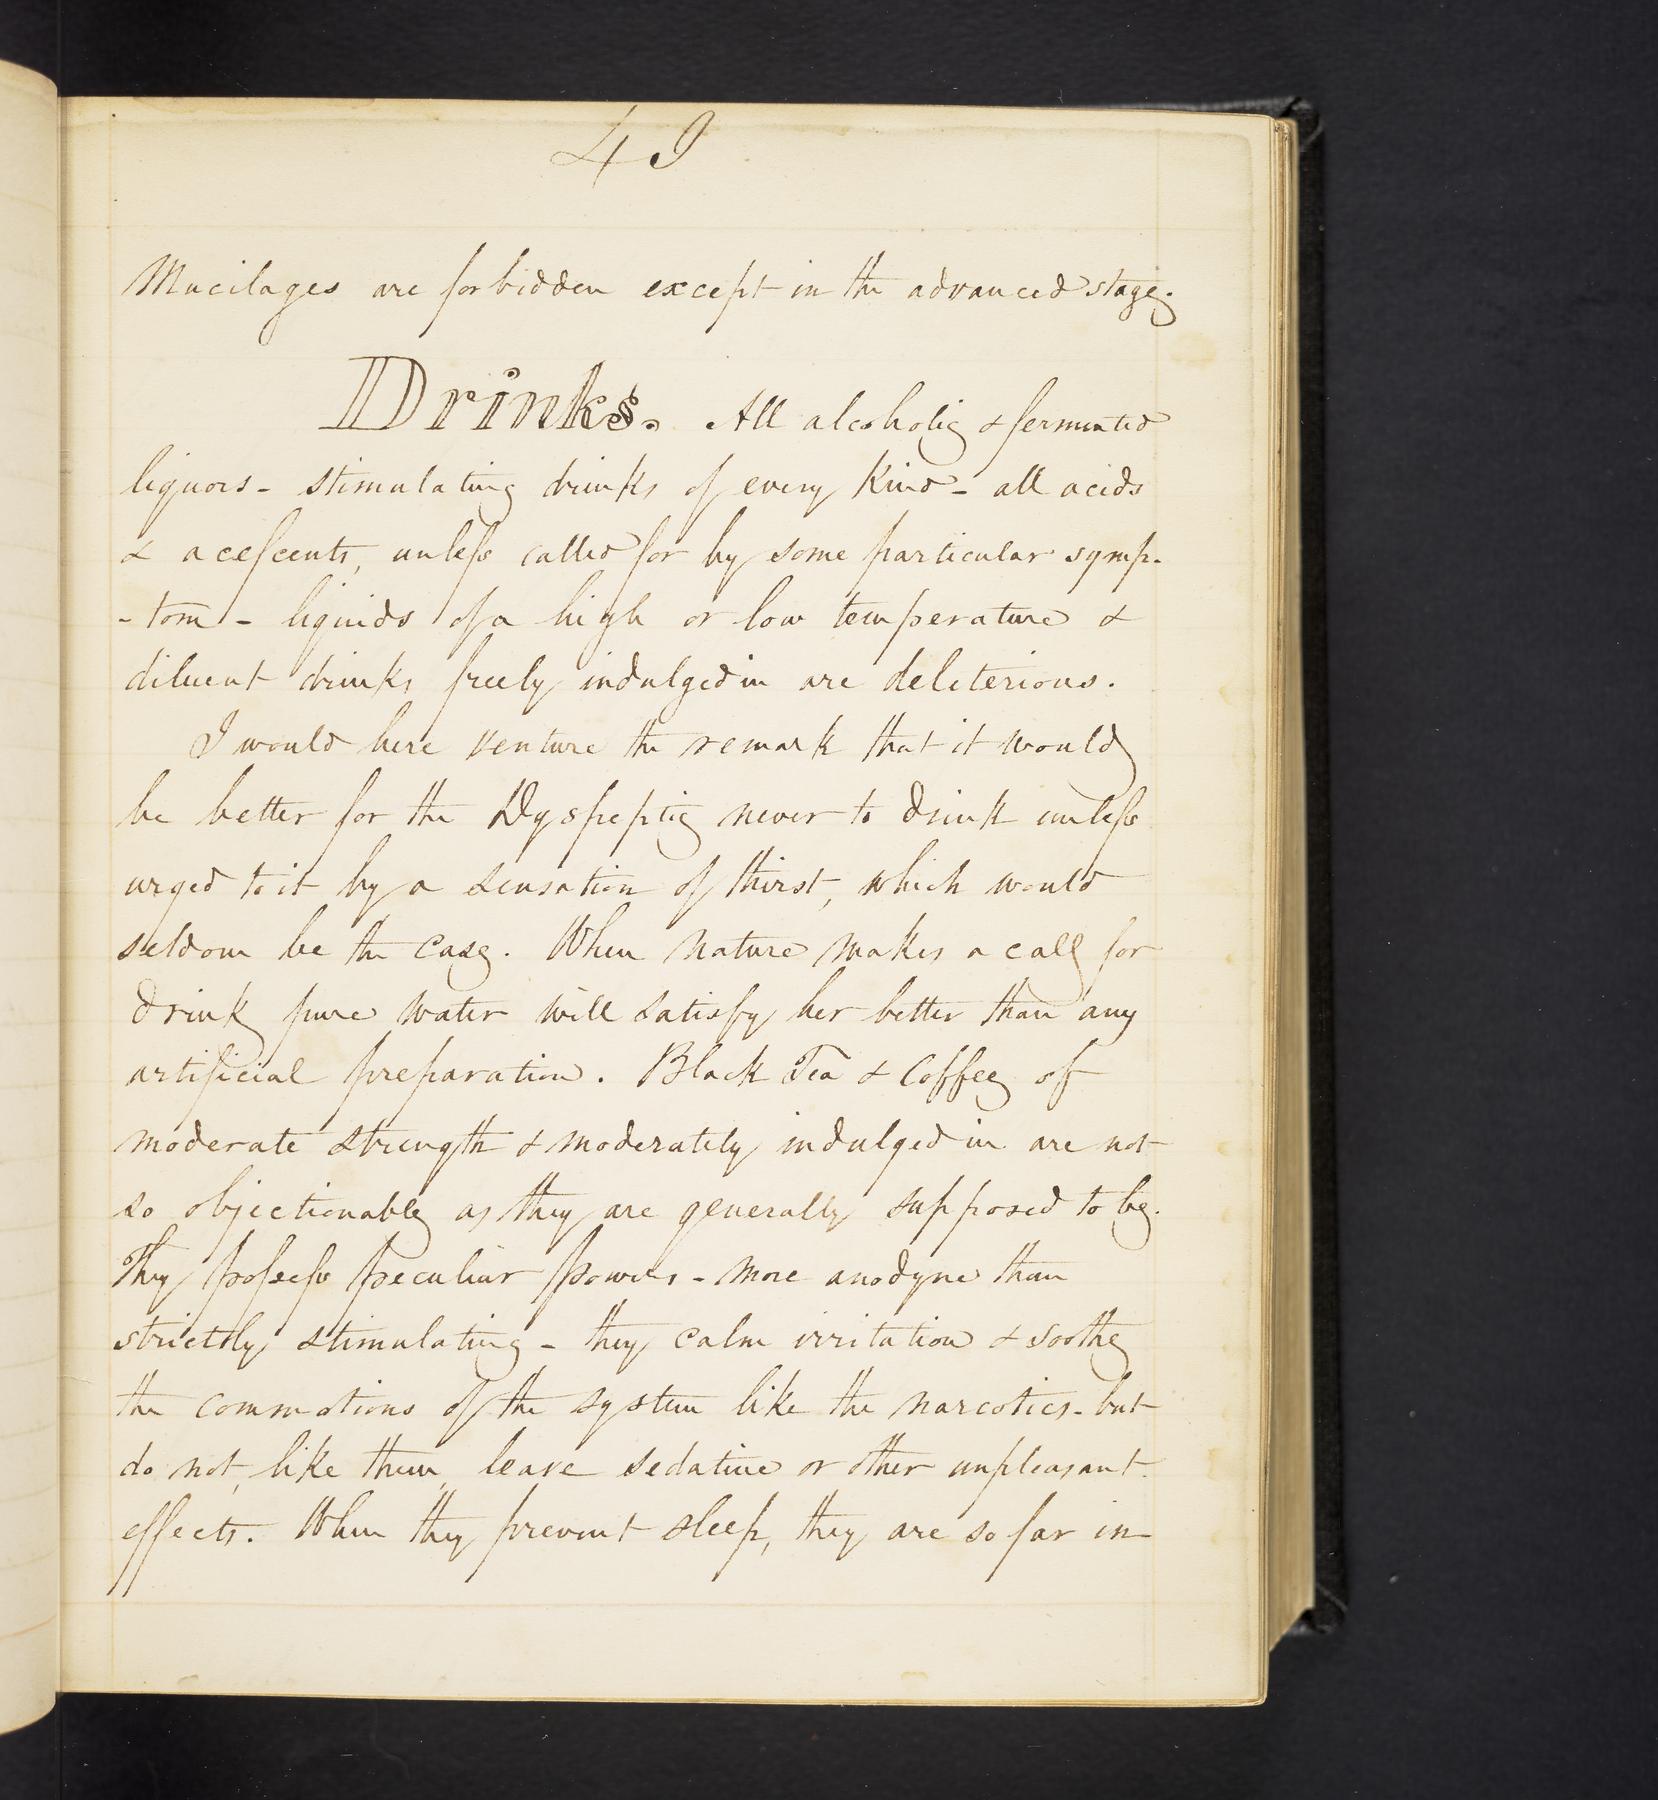 49
Mucilages are forbidden except in the advanced stage.
Drinks. All alcoholic & fermented
liquors - stimulating drinks of every kind - all acids
& acescents, unless called for by some particular symp-
-tom - liquids of a high or low temperature &
diluent drinks freely indulged in are deleterious.
I would here venture the remark that it would
be better for the Dyspeptic never to drink unless
urged to it by a sensation of thirst, which would
seldom be the case. When nature makes a call for
drink pure water will satisfy her better than any
artificial preparation. Black Tea & Coffee of
moderate strength & moderately indulged in are not
so objectionable as they are generally supposed to be.
They possess peculiar powers - more anodyne than
strictly stimulating - they calm irritation & soothe
the commotions of the system like the narcotics - but
do not, like them, leave sedative or other unpleasant
effects. When they prevent sleep, they are so far in-